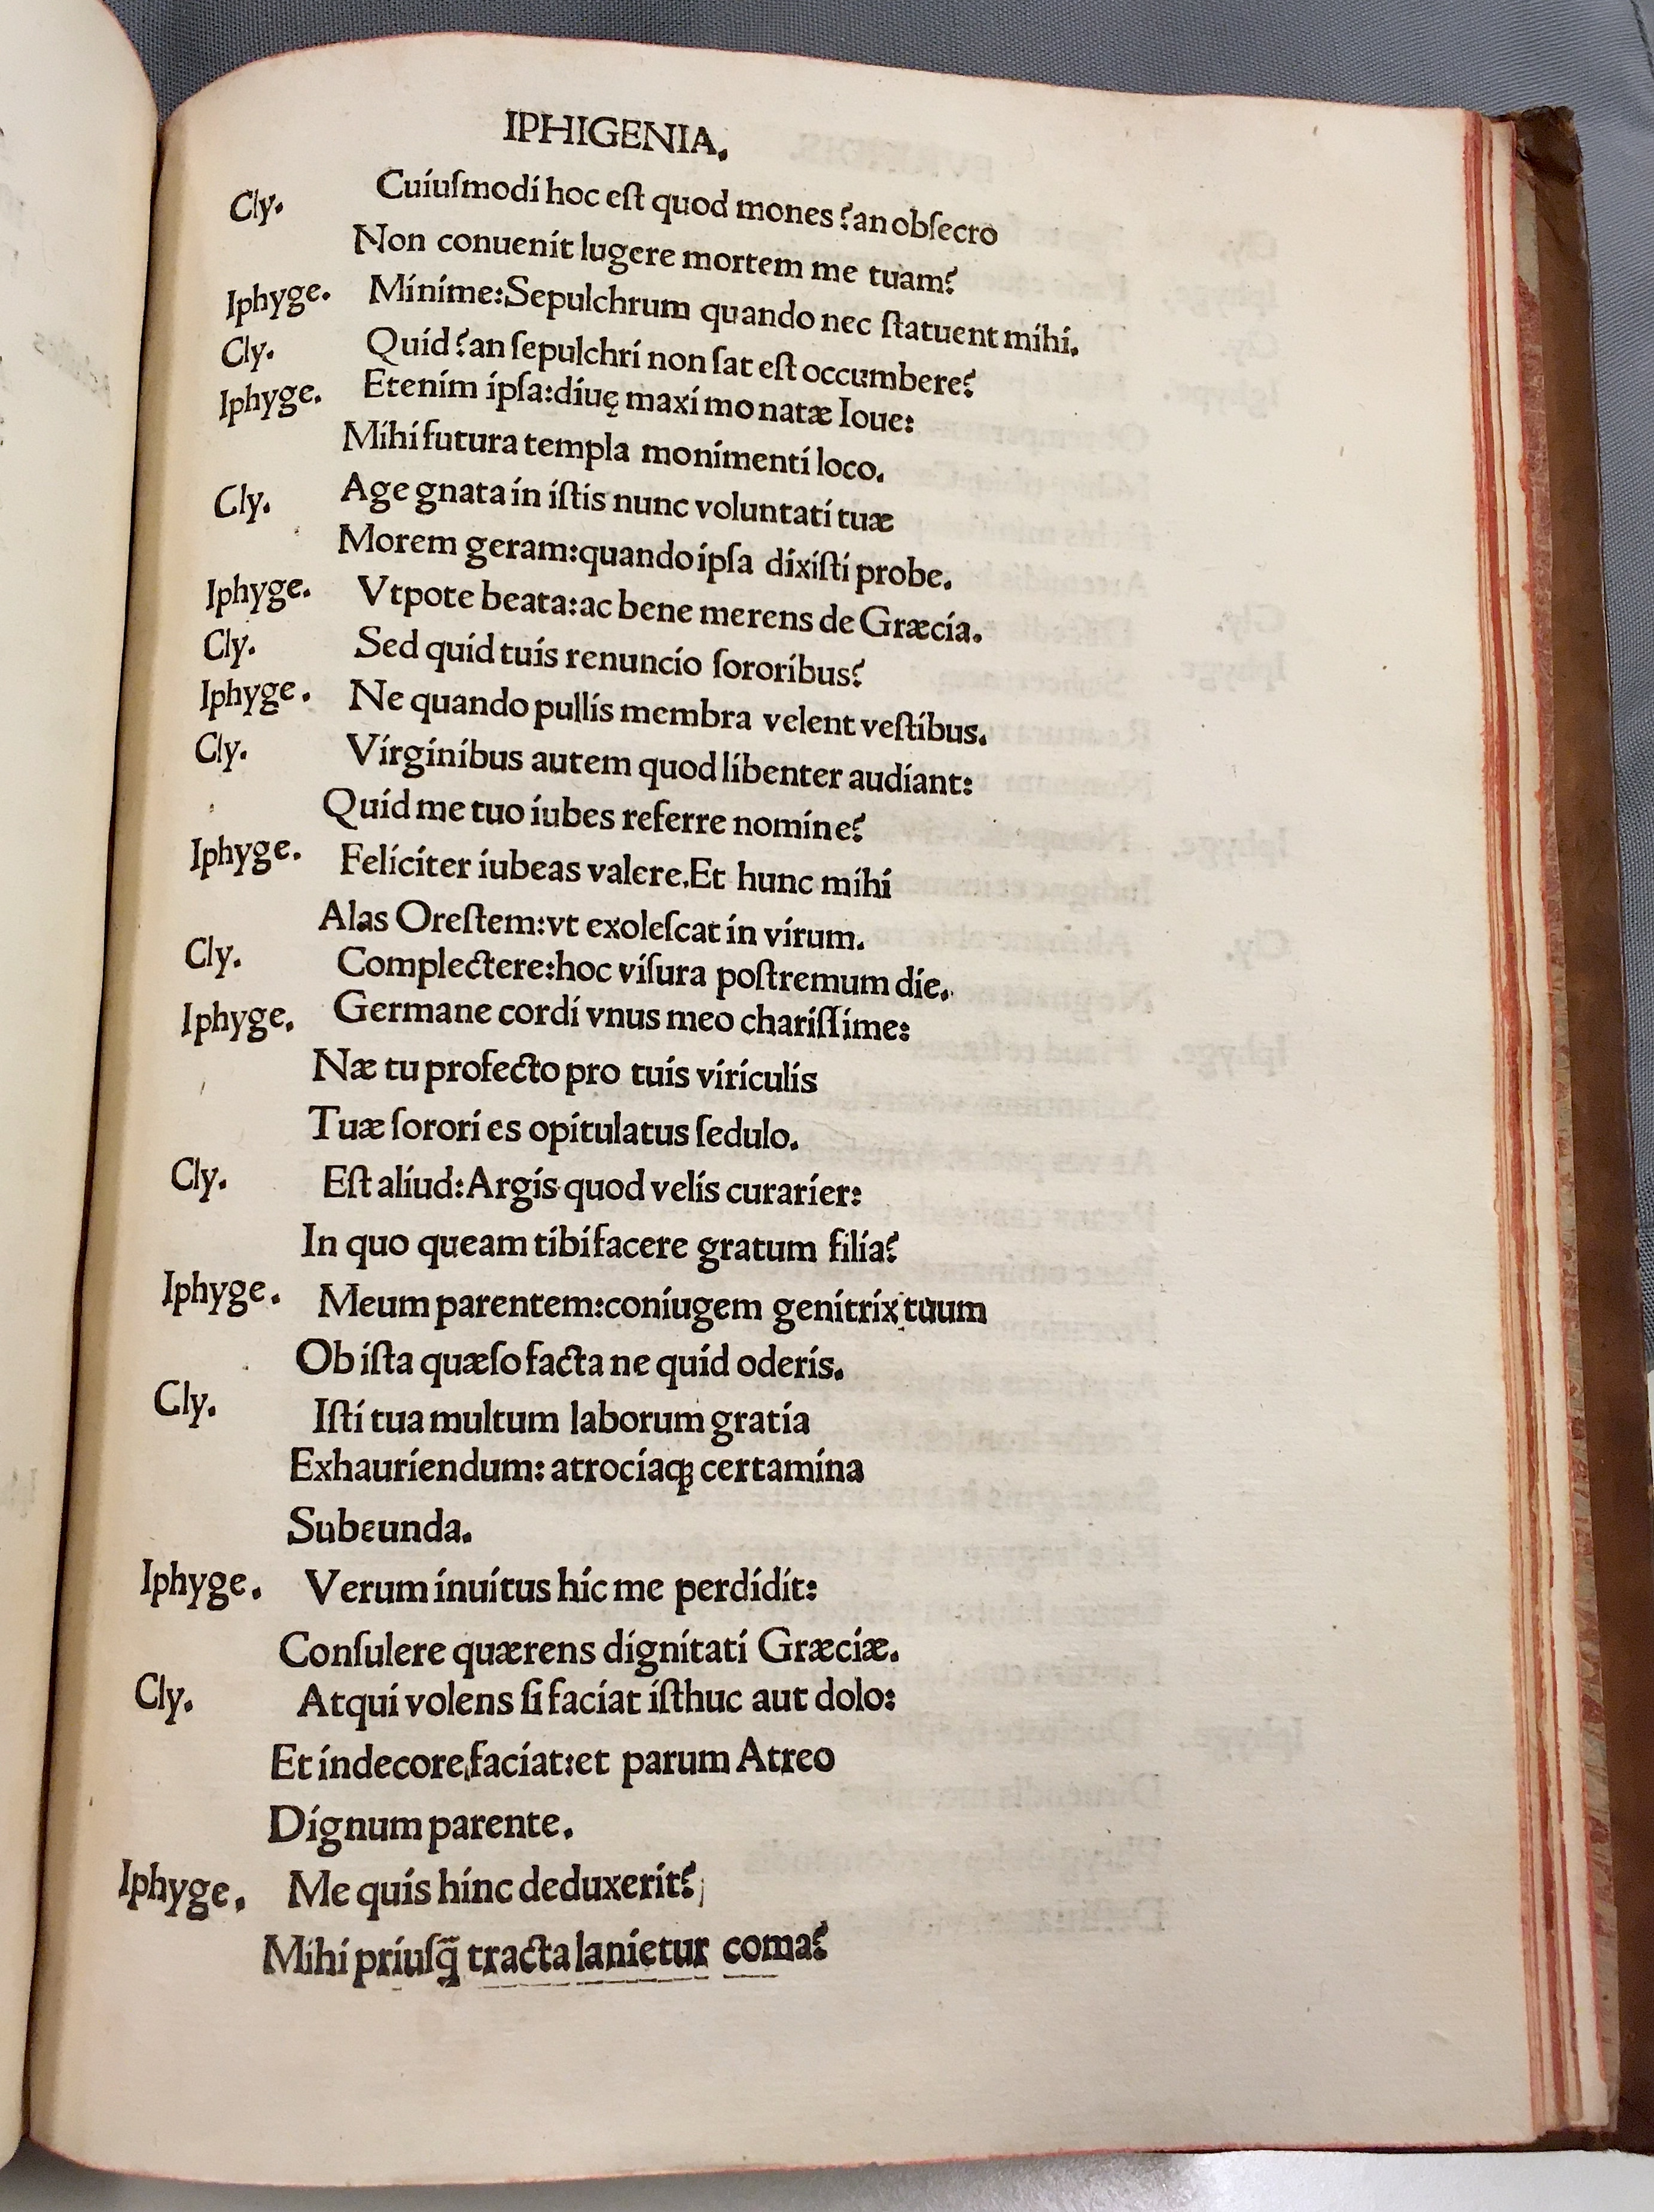 IPHIGENIA.
Cly. Cuiuſmodi hoc eſt quod mones? an obſecro
Non conuenit lugere mortem me tuam?
Iphyge. Minime: Sepulchrum quando nec ſtatuent mihi.
Cly. Quid? an ſepulchri non ſat eſt occumbere?
Iphyge. Etenim ipſa: diuę maximo natæ Ioue:
Mihi futura templa monimenti loco.
Cly. Age gnata in iſtis nunc voluntati tuæ
Morem geram: quando ipſa dixiſti probe.
Iphyge. Vtpote beata: ac bene merens de Græcia.
Cly. Sed quid tuis renuncio ſororibus?
Iphyge. Ne quando pullis membra velent veſtibus.
Cly. Virginibus autem quod libenter audiant:
Quid me tuo iubes referre nomine?
Iphyge. Feliciter iubeas valere. Et hunc mihi
Alas Oreſtem: vt exoleſcat in virum.
Cly. Complectere: hoc viſura poſtremum die.
Iphyge. Germane cordi vnus meo chariſſime:
Næ tu profecto pro tuis viriculis
Tuæ ſorori es opitulatus ſedulo.
Cly. Eſt aliud: Argis quod velis curarier:
In quo queam tibi facere gratum filia?
Iphyge. Meum parentem: coniugem genitrix tuum
Ob iſta quæſo facta ne quid oderis.
Cly. Iſti tua multum laborum gratia
Exhauriendum: atrociaqꝫ certamina
Subeunda.
Iphyge. Verum inuitus hic me perdidit:
Conſulere quærens dignitati Græciæ.
Cly. Atqui volens ſi faciat iſthuc aut dolo:
Et indecore faciat: et parum Atreo
Dignum parente.
Iphyge. Me quis hinc deduxerit?
Mihi priuſq̃ tracta lanietur coma?